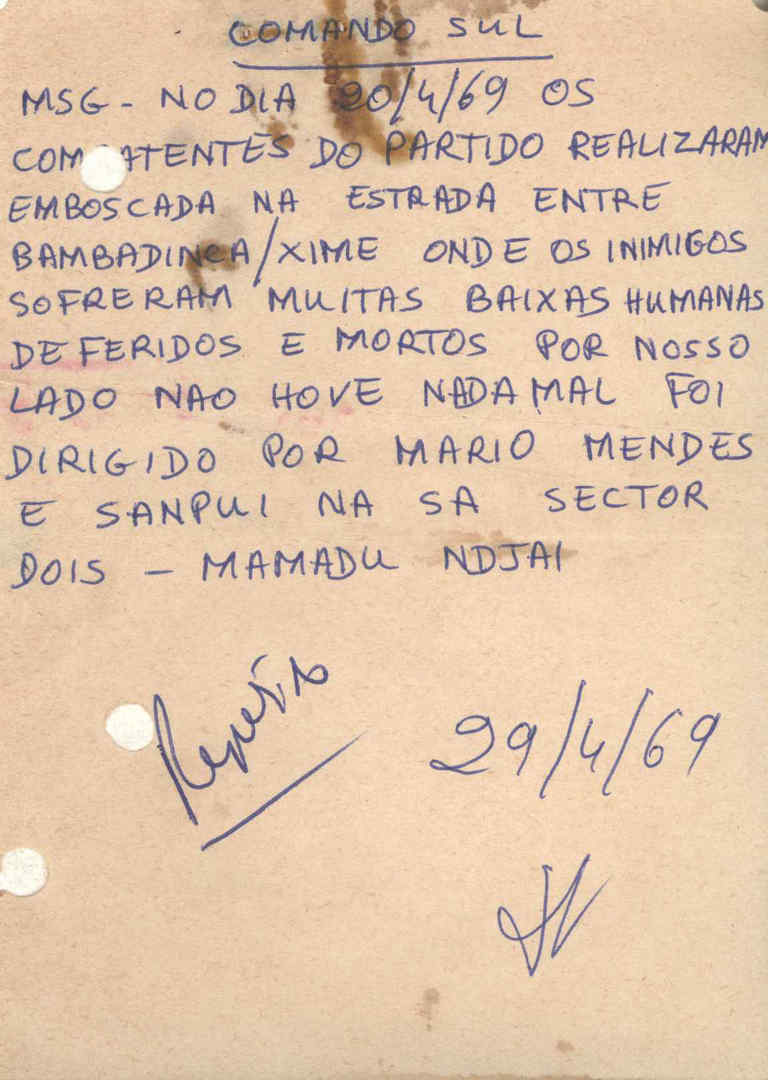 COMANDO SUL
MSG - NO DIA 20/4/69 OS
COM ATENTES DO PARTIDO REALIZARAM
EMBOSCADA NA ESTRADA ENTRE
BAMBADINCA/XIME ONDE OS INIMIGOS
SOFRERAM MUITAS BAIXAS HUMANAS
DE FERIDOS E MORTOS POR NOSSO
LADO NAO HOVE NADA MAL FOI
DIRIGIDO POR MARIO MENDES
E SANPUI NA SA SECTOR
DOIS - MAMADU NDJAI
29/4/69